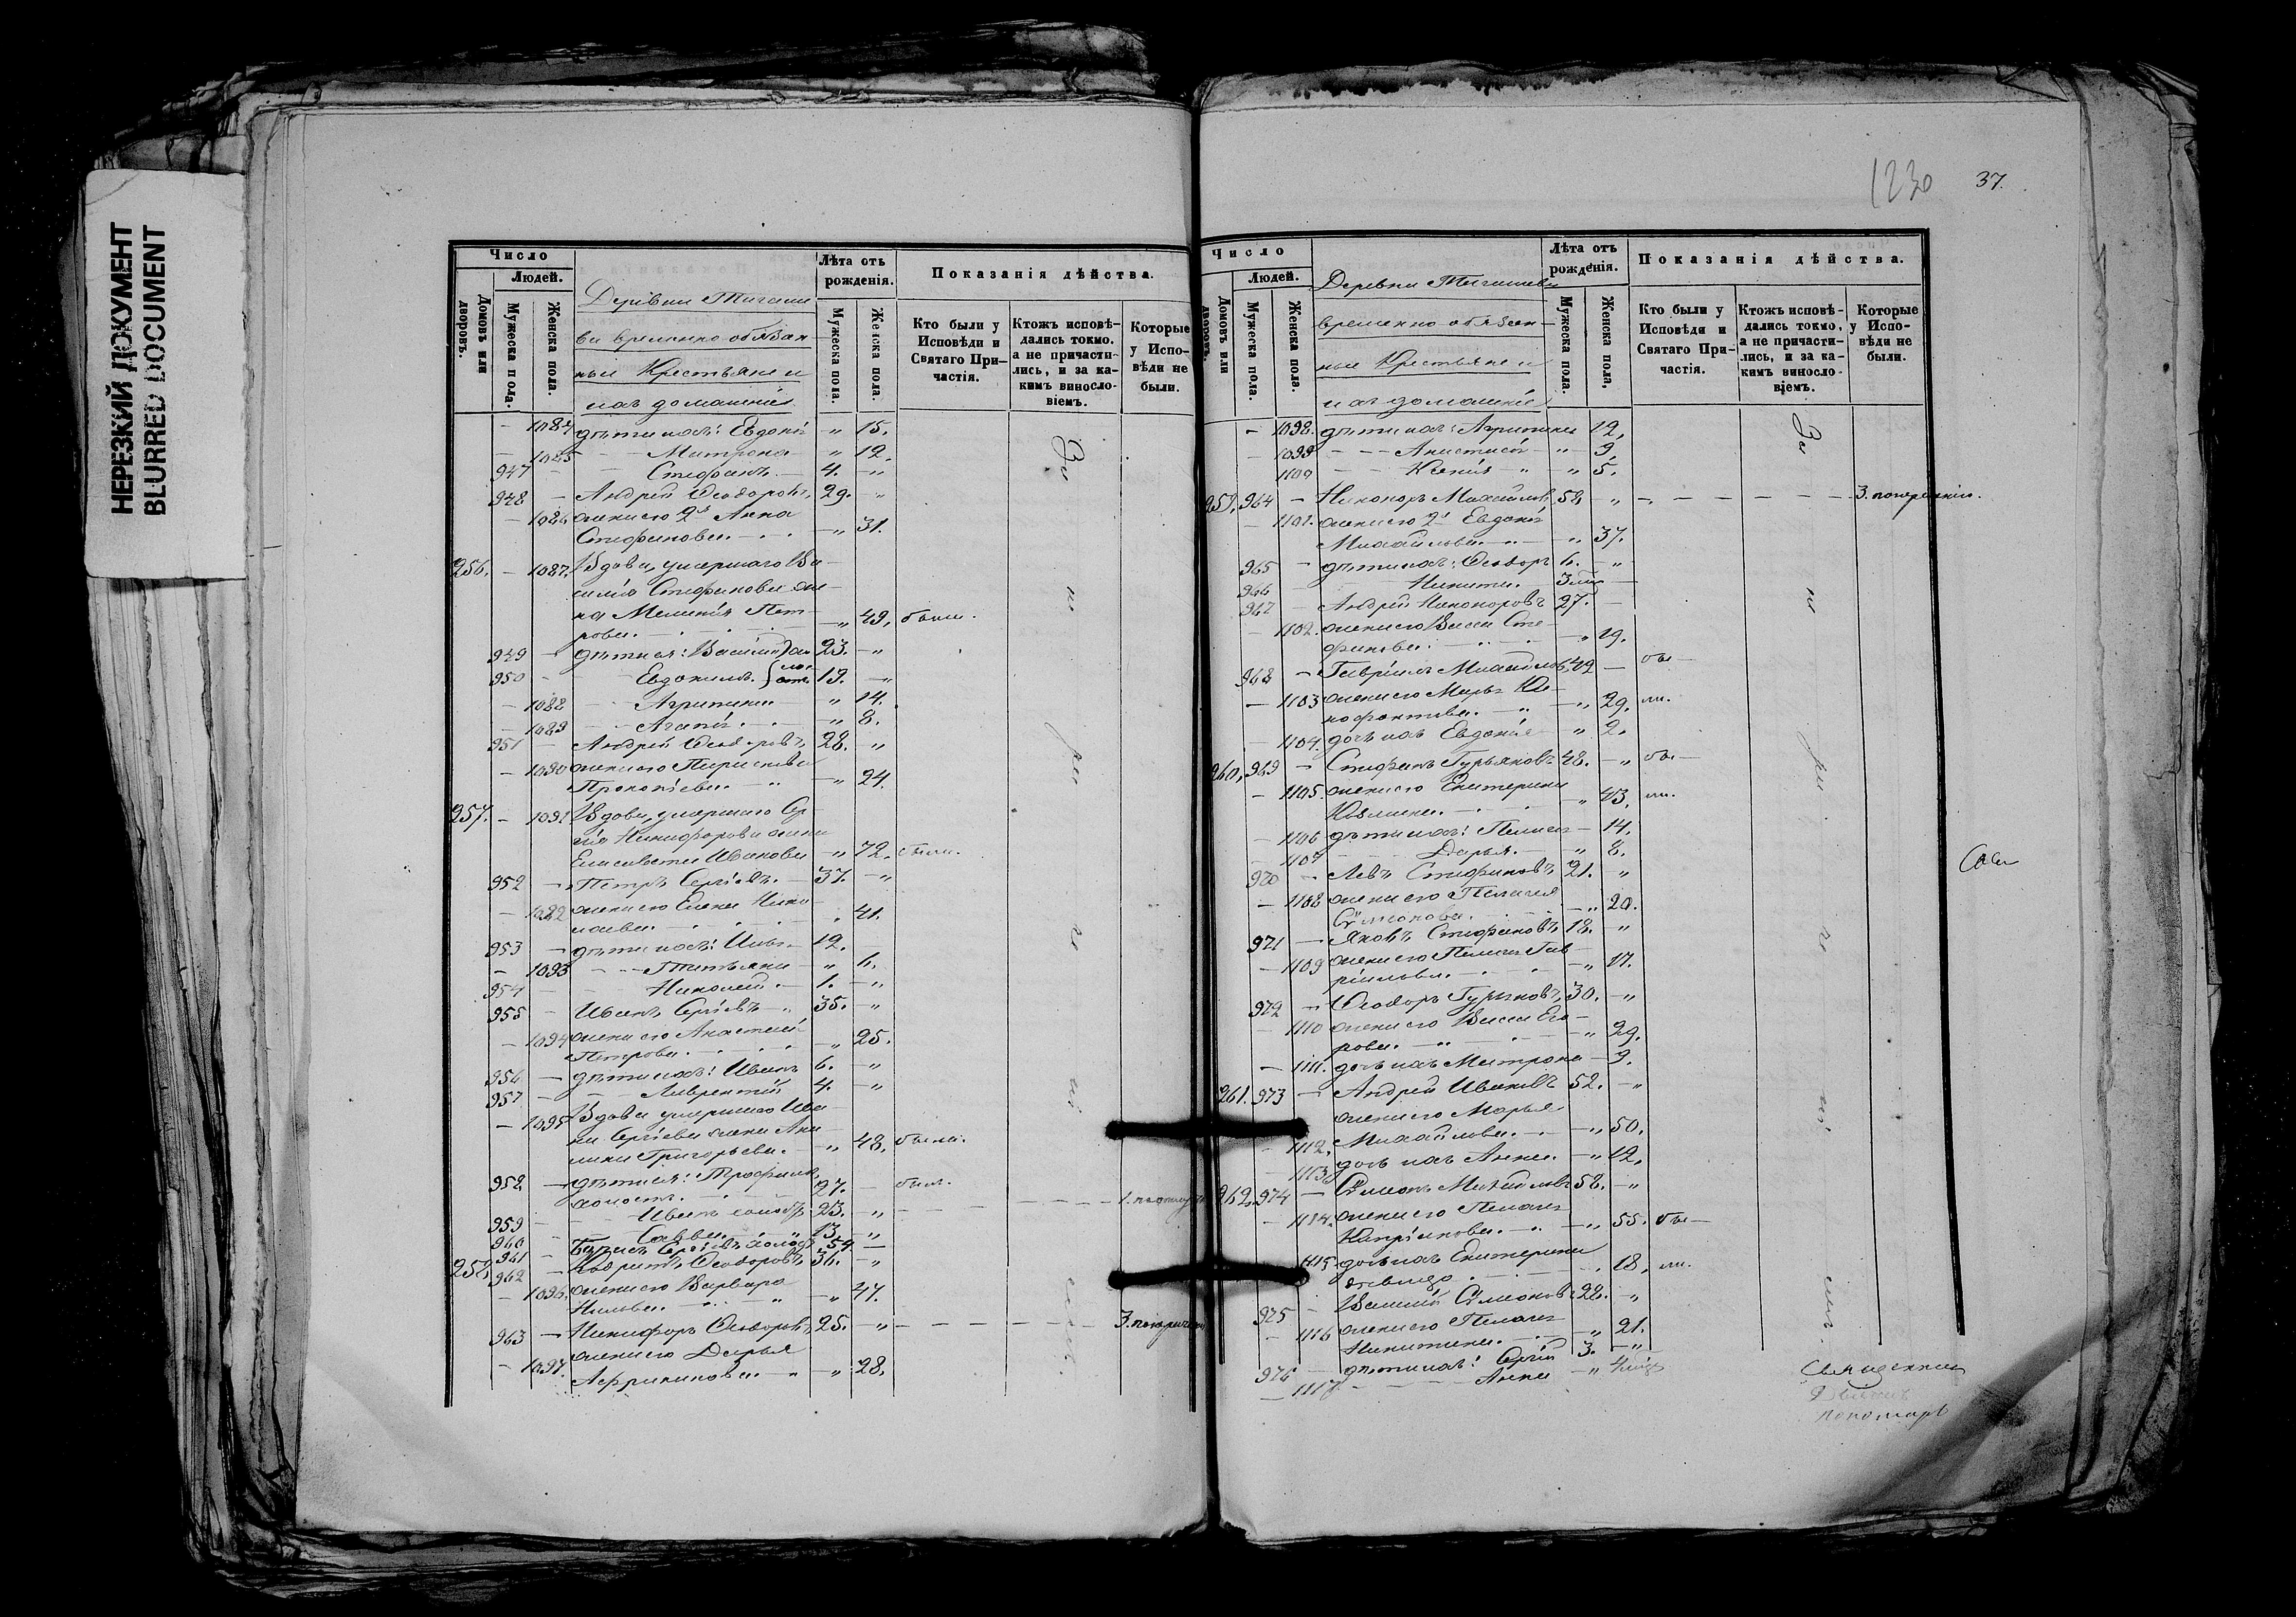 НЕРЕЗКИЙ ДОКУМЕНТ
BLURRED DOCUMENT
Число
Людей.
Домовъ или дворовъ.
Мужеска пола.
Женска пола.
Деревни
временно обязан-
ные Крестьяне и
ихъ домашніе
Лѣта отъ рожденія.
Мужеска пола.
Женска пола.
Показанія дѣйства.
Кто были у Исповѣди и Святаго При-
частія.
Ктожъ исповѣ-
дались токмо.
а не причасти-
лись, и за ка-
кимъ виносло-
віемъ.
Которые
у Испо-
вѣди не
были.
– 1084 дѣти ихъ: Евдокія „ 15.
– 1085 – Матрона „ 12.
947 – Стефанъ. 4. „
948 – Андрей Ѳеодоровъ 29. „
– 1086 жена его 2я Анна
Стефанова. – „ 31.
256. – 1087. Вдова, умершаго Ва-
силія Стефанова же-
на Меланія Пет-
рова. – „ 49. была.
949 – дѣти ея: Василій 23. – „
950 – Евдокимъ. 19. – „
– 1088 – Агрипина „ 14.
– 1089 – Агапія. „ 8.
951 – Андрей Ѳеодоровъ 28. „
– 1090 жена его Параскева
Прокопіева. – „ 24.
257. – 1091 Вдова, умершаго Сер-
гія Никифорова жена
Елисавета Иванова – „ 72. была.
952 – Петръ Сергіевъ. – 37. – „
– 1092 жена его Елена Нико-
лаева. „ 41.
953 – дѣти ихъ: Илья 12.
– 1093 – Татьяна – „ 6.
954 – Николай. – 1. – „
955 – Иванъ Сергіевъ „ 35. – „
– 1094 жена его Анастасія
Петрова. „ 25.
956 – дѣти ихъ: Иванъ 6. – „
957 – Лаврентій 4. – „
– 1095 Вдова умершаго Ива-
на Сергіева жена Аку-
лина Григорьева. – „ 48. была.
958 – дѣти ея: Трофимъ
холостъ. 27. – былъ.
959 – Иванъ холостъ 23. – „ – – – 1.
960 – Савва. 13. „
961 – Сергіевъ холостъ 54 –
258. 962 – Ѳеодоровъ 36. – „
– 1096. жена его Варвара
– „ 47.
963 – Никифоръ Ѳеодоровъ 25. – „ – – – 3.
– 1097. жена его Дарья
Африканова. – „ „ 28.
За
не
ра
1230
37.
Число
Людей.
Домовъ или дворовъ.
Мужеска пола.
Женска пола.
Деревни
временно обязан-
ные Крестьяне и
ихъ домашніе
Лѣта отъ рожденія.
Мужеска пола.
Женска пола,
Показанія дѣйства.
Кто были у Исповѣди и Святаго При-
частія.
Ктожъ исповѣ-
дались токмо,
а не причасти-
лись, и за ка-
кимъ винословіемъ.
Которые
у Испо-
вѣди не
были.
– 1098. дѣти ихъ: Агрипина 12.
– 1099 – – Анастасія – „ 9.
1100 – Ксенія „ „ 5.
259. 964 – Никоноръ Михаиловъ 58. „ – – – 3.
– 1101. жена его 2я Евдокія
Михайлова. – „ 37.
965 – дѣти ихъ: Ѳеодоръ 6. „
966 – Никита. 3
967 – Андрей Никоноровъ 27. –
– 1102. жена его Васса Сте-
фанова. – „ 19.
968 – Гавріилъ Михайловъ 49 – бы-
– 1103 жена его Марья Ксе-
нофонтова. „ – „ 29. ли.
– 1104. дочь ихъ Евдокія „ 2.
260. 969 – Стефанъ Гурьяновъ 48. – „ бы-
– 1105. жена его Екатерина
– „ 43. ли.
– 1106 дѣти ихъ: Пелагея – 14.
– 1107 – Дарья. – „ 8.
970 – Левъ Стефановъ 21. „
– 1108 жена его Пелагея
Сѵмеонова. – „ 20.
971 – Яковъ Стефановъ 18. – „
– 1109 жена его Пелагея Гав-
ріилова. – „ 17.
972 – Ѳеодоръ Гурьяновъ 30. – „
– 1110 жена его Васса Его-
рова. – „ 29.
– 1111. дочь ихъ Матрона – 9.
261. 973 – Андрей Ивановъ 52. – „
жена его Марья
1112. Михайлова. – „ 50.
– 1113 дочь ихъ Анна. – „ 12.
262. 974 – Сѵмеонъ Михайловъ 58. – „
– 1114. жена его Пелагея
Кипріянова. – „ 55. бы-
1115. дочь ихъ Екатерина
дѣвица. „ 18. ли.
975 – Василій Сѵмеоновъ 22. – „
– 1116 жена его Пелагея
Никитина. – „ 21.
976 – дѣти ихъ: Сергій 3. – „
– 1117 – Анна – „ 4
За
не
ра
Священникъ
Діаконъ
пономарь